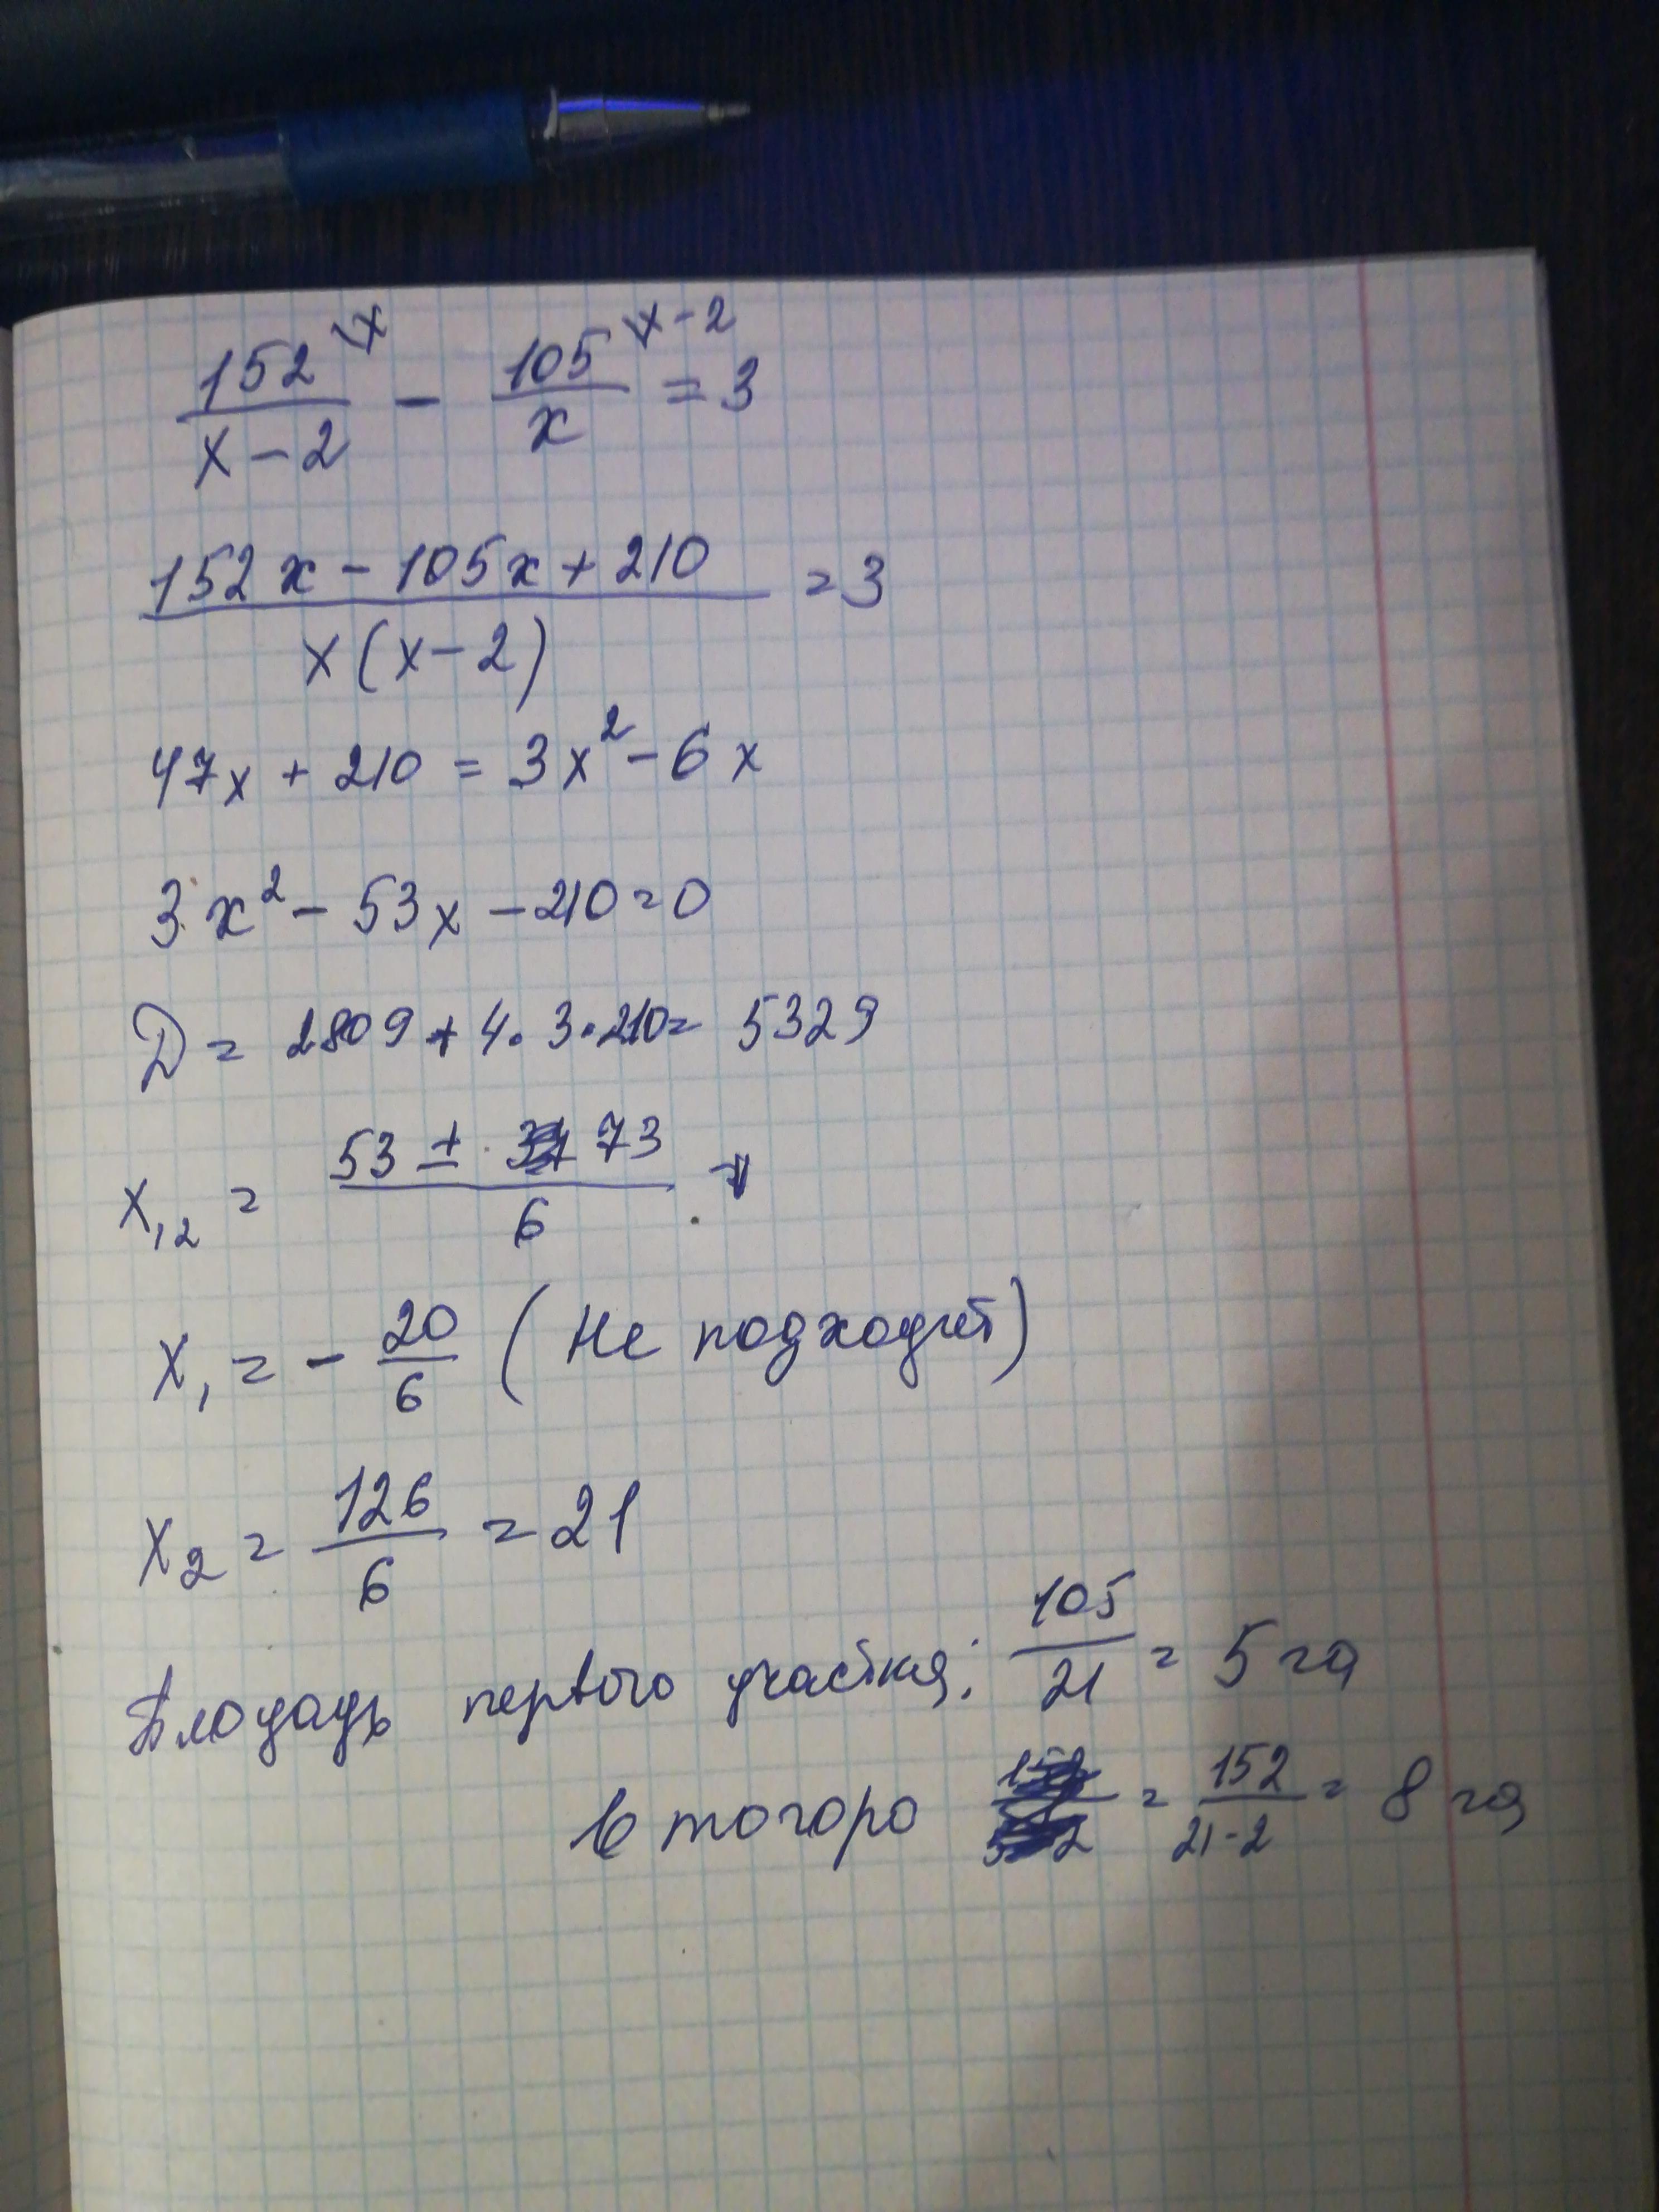 152\x / x-2 - 105\x-2 / x = 3
152x - 105x + 210 / x(x-2) = 3
47x + 210 = 3x² - 6x
3x² - 53x - 210 = 0
D = 2809 + 4·3·210 = 5329
x₁,₂ = 53 ± 73 / 6
x₁ = - 20/6 (Не подходит)
x₂ = 126/6 = 21
Площадь первого участка: 105/21 = 5 га
втогоро = 152/21-2 = 8 га